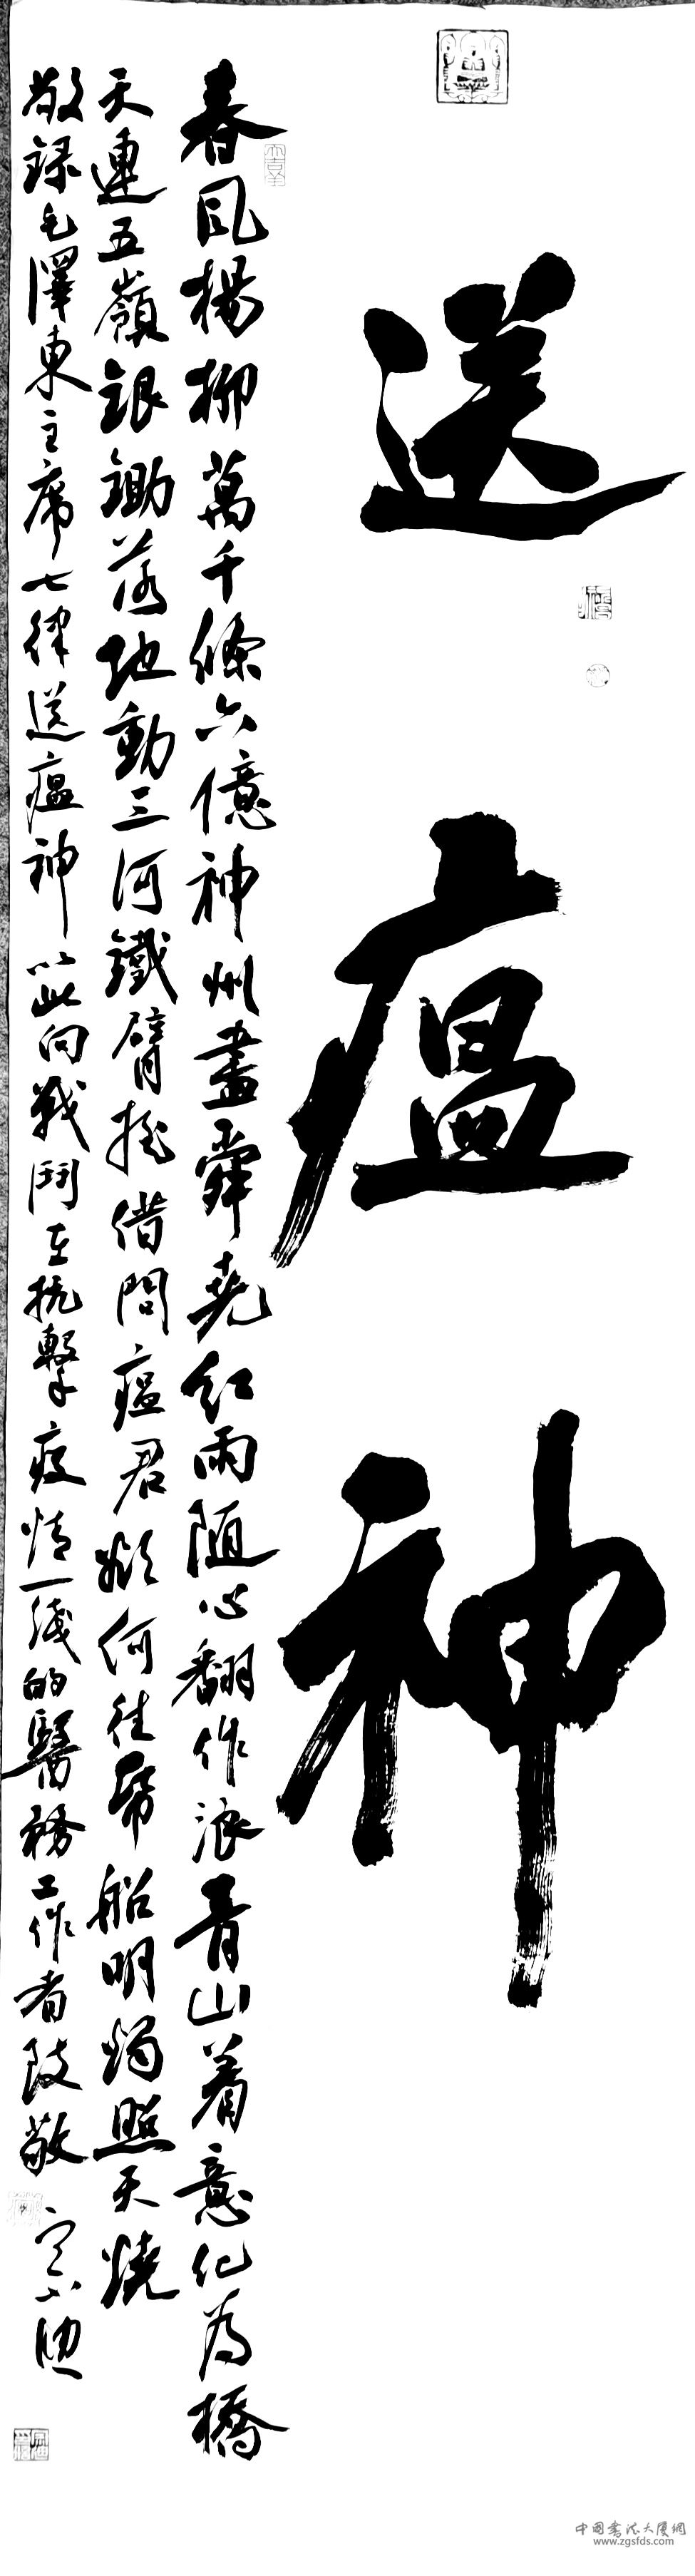 送瘟神
春风楊柳萬千條六億神州盡舜堯紅雨随心翻作浪青山着意化為橋
天連五嶺銀鋤落地動三河鐵臂摇借問瘟君欲何往帋船明燭照天燒
敬録毛澤東主席七律送瘟神以此向戰鬥在抗擊疫情一綫的醫務工作者致敬
中國書法大廈網
www.zgsfds.com